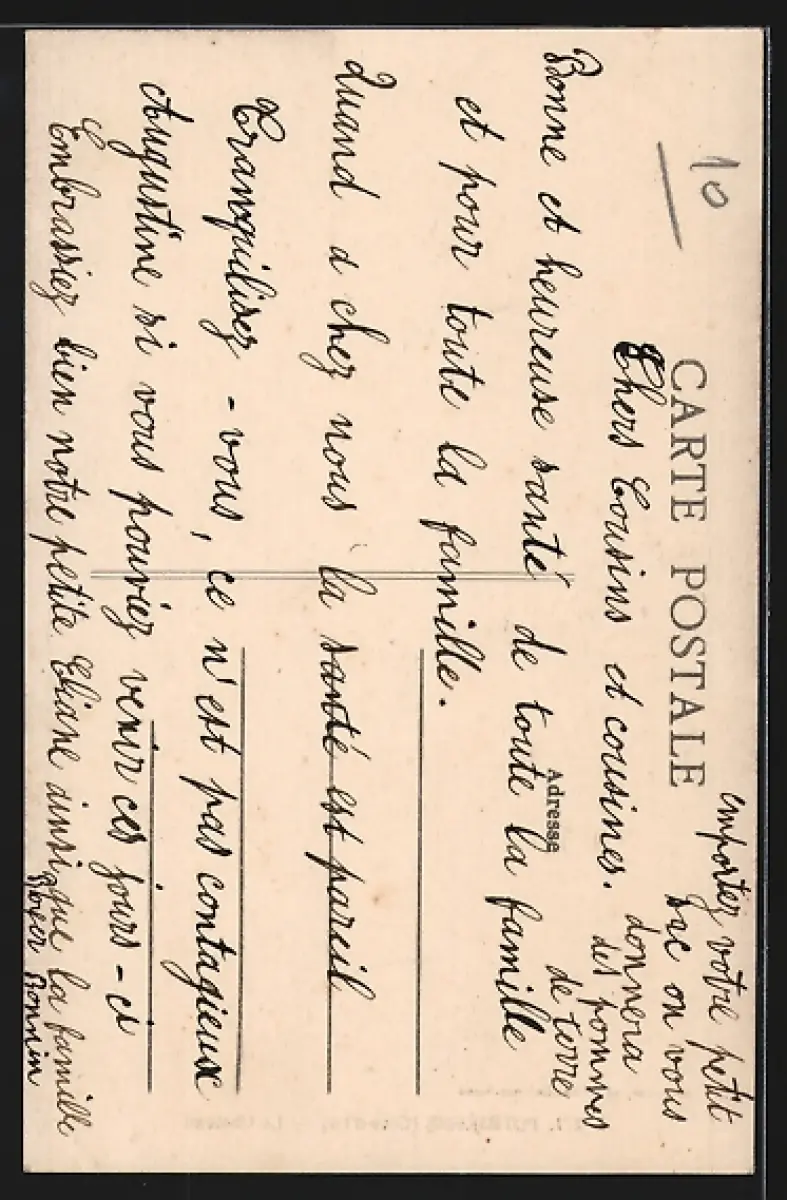 10
CARTE POSTALE
Adresse
Chers Cousins et cousines.
Bonne et heureuse santé de toute la famille
et pour toute la famille.
Quand a chez nous la santé est pareil
Tranquilisez-vous, ce n'est pas contagieux
Augustine si vous pouviez venir ces jours-ci
Embrassiez bien notre petite Eliane ainsi que la famille
Boyer Bonnin
emportez votre petit
sac on vous
donnera
des pommes
de terre